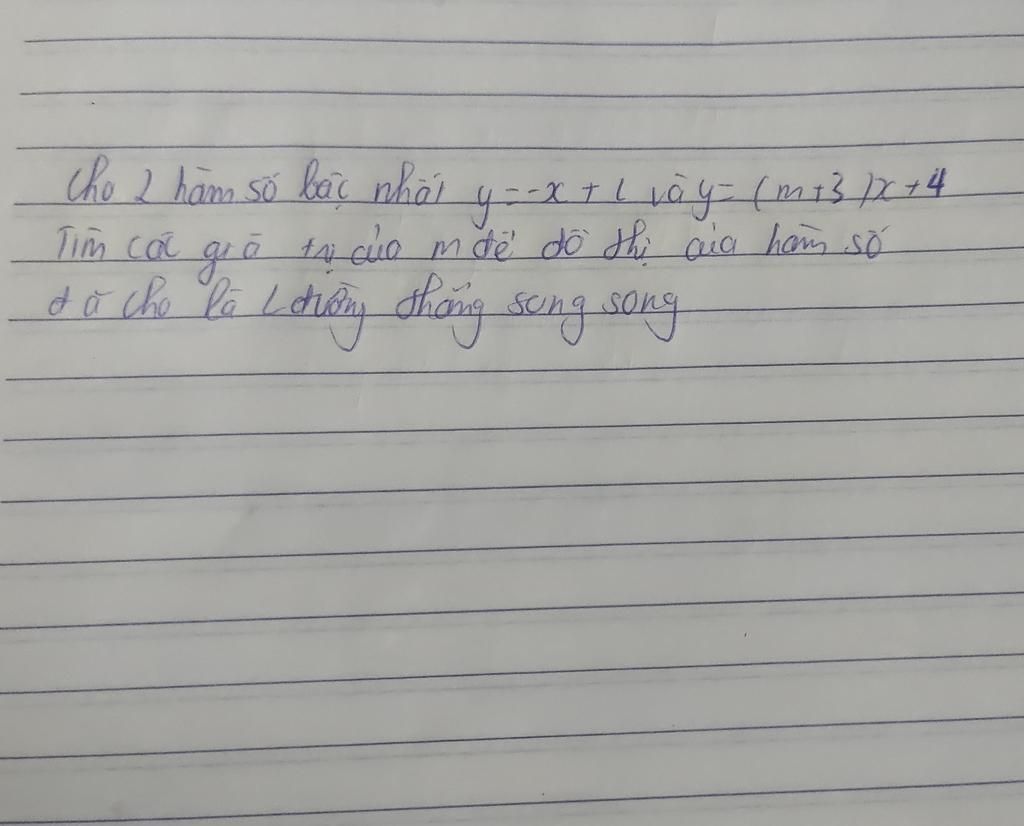 Cho 2 hàm số bậc nhất y = -x + 2 và y = (m+3)x+4
Tìm các giá trị của m để đồ thị của hàm số
đã cho là 2 đường thẳng song song